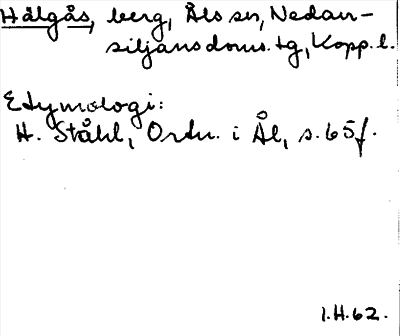 Hålgås, berg, Åls sn, Nedan-
siljans doms. tg, Kopp. l.
Etymologi:
H. Ståhl, Ortn. i Ål, s. 65 f.
I.H.62.